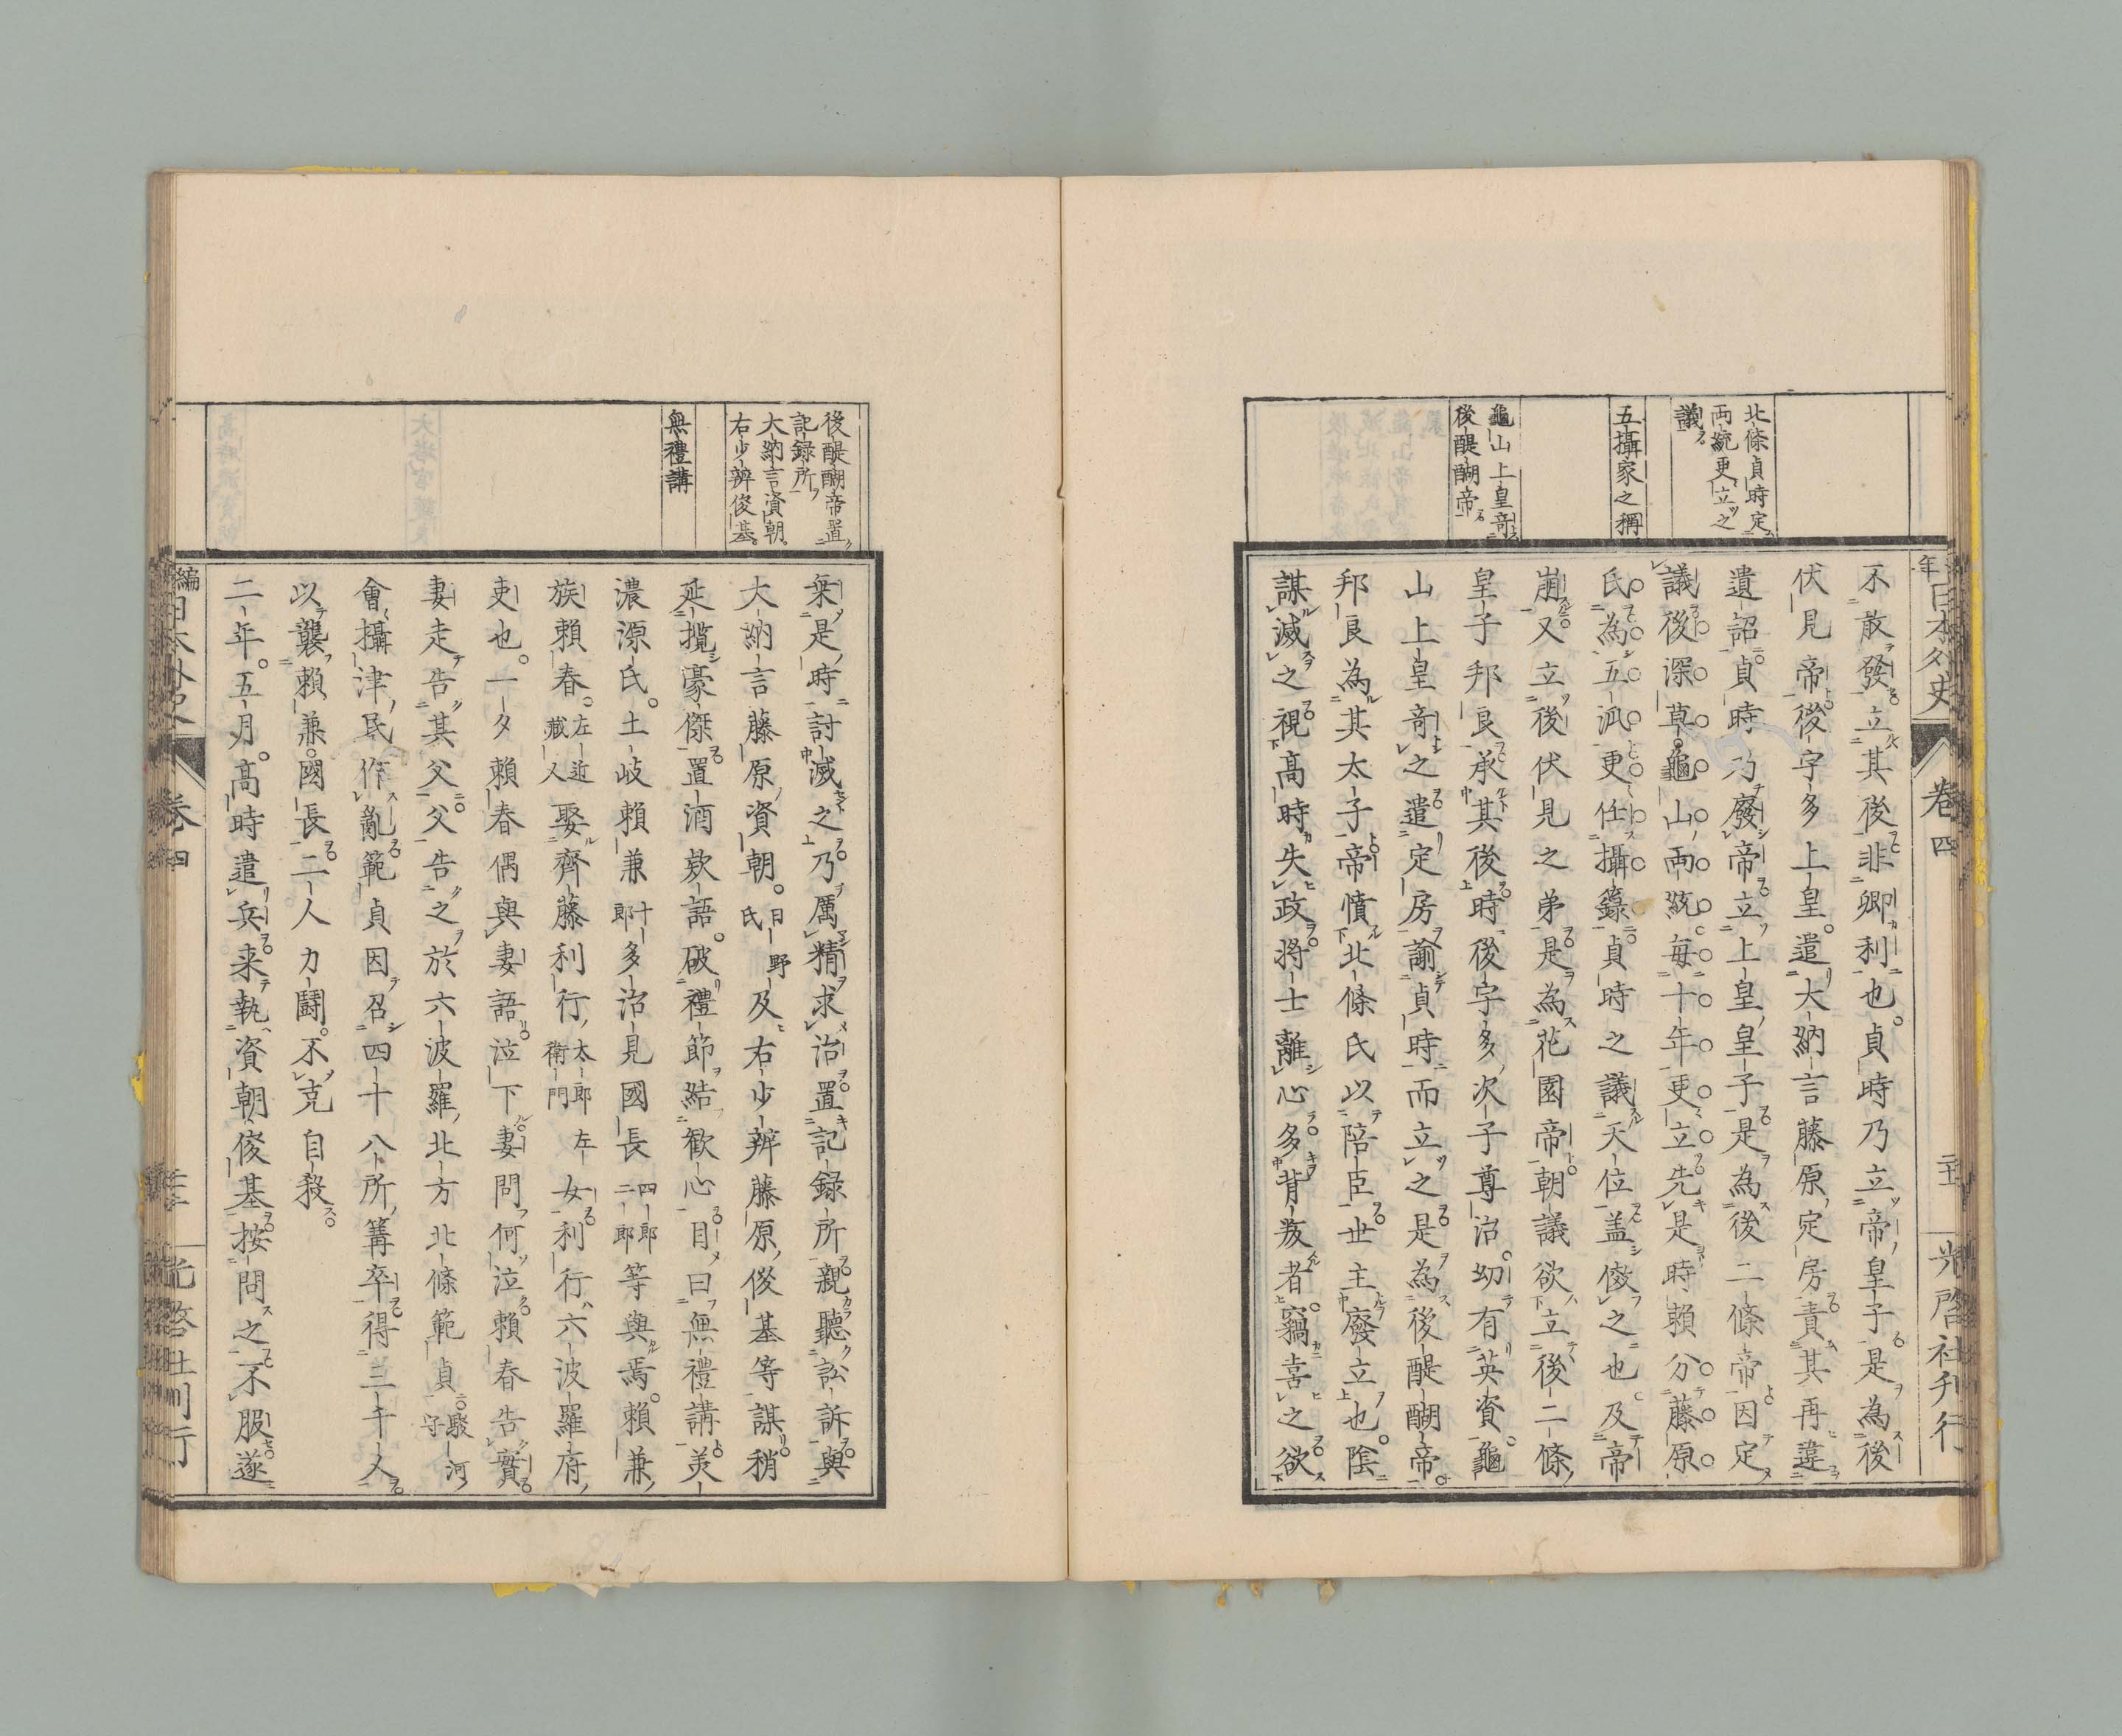 北條貞時定
兩統更立之
議
五攝家之稱
龜山上皇竒
後醍醐帝
不散發立其後非卿利也貞時乃立帝皇子是為後
伏見帝後宇多上皇遣大納言藤原定房責其再違
遺詔貞時乃廢帝立上皇皇子是為後二條帝因定
議後深草龜山兩統每十年更立先是時頼分藤原
氏為五派更任攝籙貞時之議天位盖倣之也及帝
崩又立後伏見之弟是為花園帝朝議欲立後二條
皇子邦良承其後時後宇多次子尊治幼有英資龜
山上皇竒之遣定房諭貞時而立之是為後醍醐帝
邦良為其太子帝憤北條氏以陪臣世主廢立也陰
謀滅之視高時失政將士離心多背叛者竊喜之欲
日本外史
卷四
光啓社刋行
後醍醐帝置
記録所
大納言資朝
右少辨俊基
無禮講
椉是時討滅之乃厲精求治置記録所親聽訟訴與
大納言藤原資朝日野氏及右少辨藤原俊基等謀稍
延攬豪傑置酒欵語破禮節結歡心目曰無禮講美
濃源氏土岐頼兼十郎多治見國長四郎二郎等與焉頼兼
族頼春左近藏人娶齊藤利行太郎左衛門女利行六波羅府
吏也一夕頼春偶與妻語泣下妻問何泣頼春告實
妻走告其父父告之於六波羅北方北條範貞駿河守
會攝津民作亂範貞因召四十八所篝卒得三千人
以襲頼兼國長二人力鬪不克自殺
二年五月高時遣兵来執資朝俊基按問之不服遂
編
日本外史
卷四
光啓社刋行